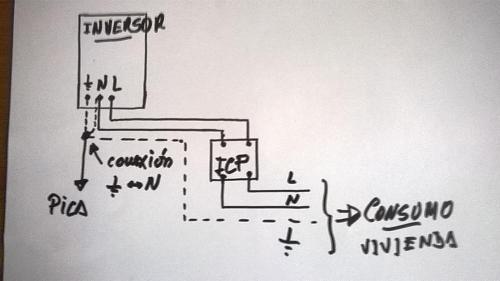 INVERSOR
⏚ N L
conexión
⏚ ↔ N
PICA
ICP
L
N
⏚
⇒ CONSUMO
VIVIENDA